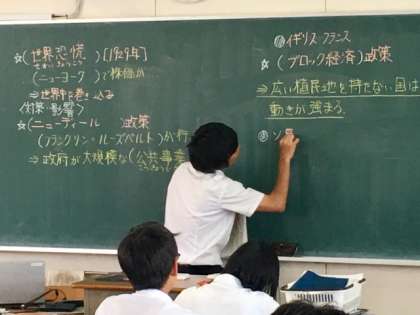 ☆(世界恐慌)[1929年]
せかいきょうこう
(ニューヨーク)で株価が
⇒世界中を巻き込む
〈対策・影響〉
☆(ニューディール)政策
(フランクリン・ルーズベルト)が行
⇒政府が大規模な(公共事業
イギリス・フランス
☆(ブロック経済)政策
⇒広い植民地を持てない国は
動きが強まる
ソ